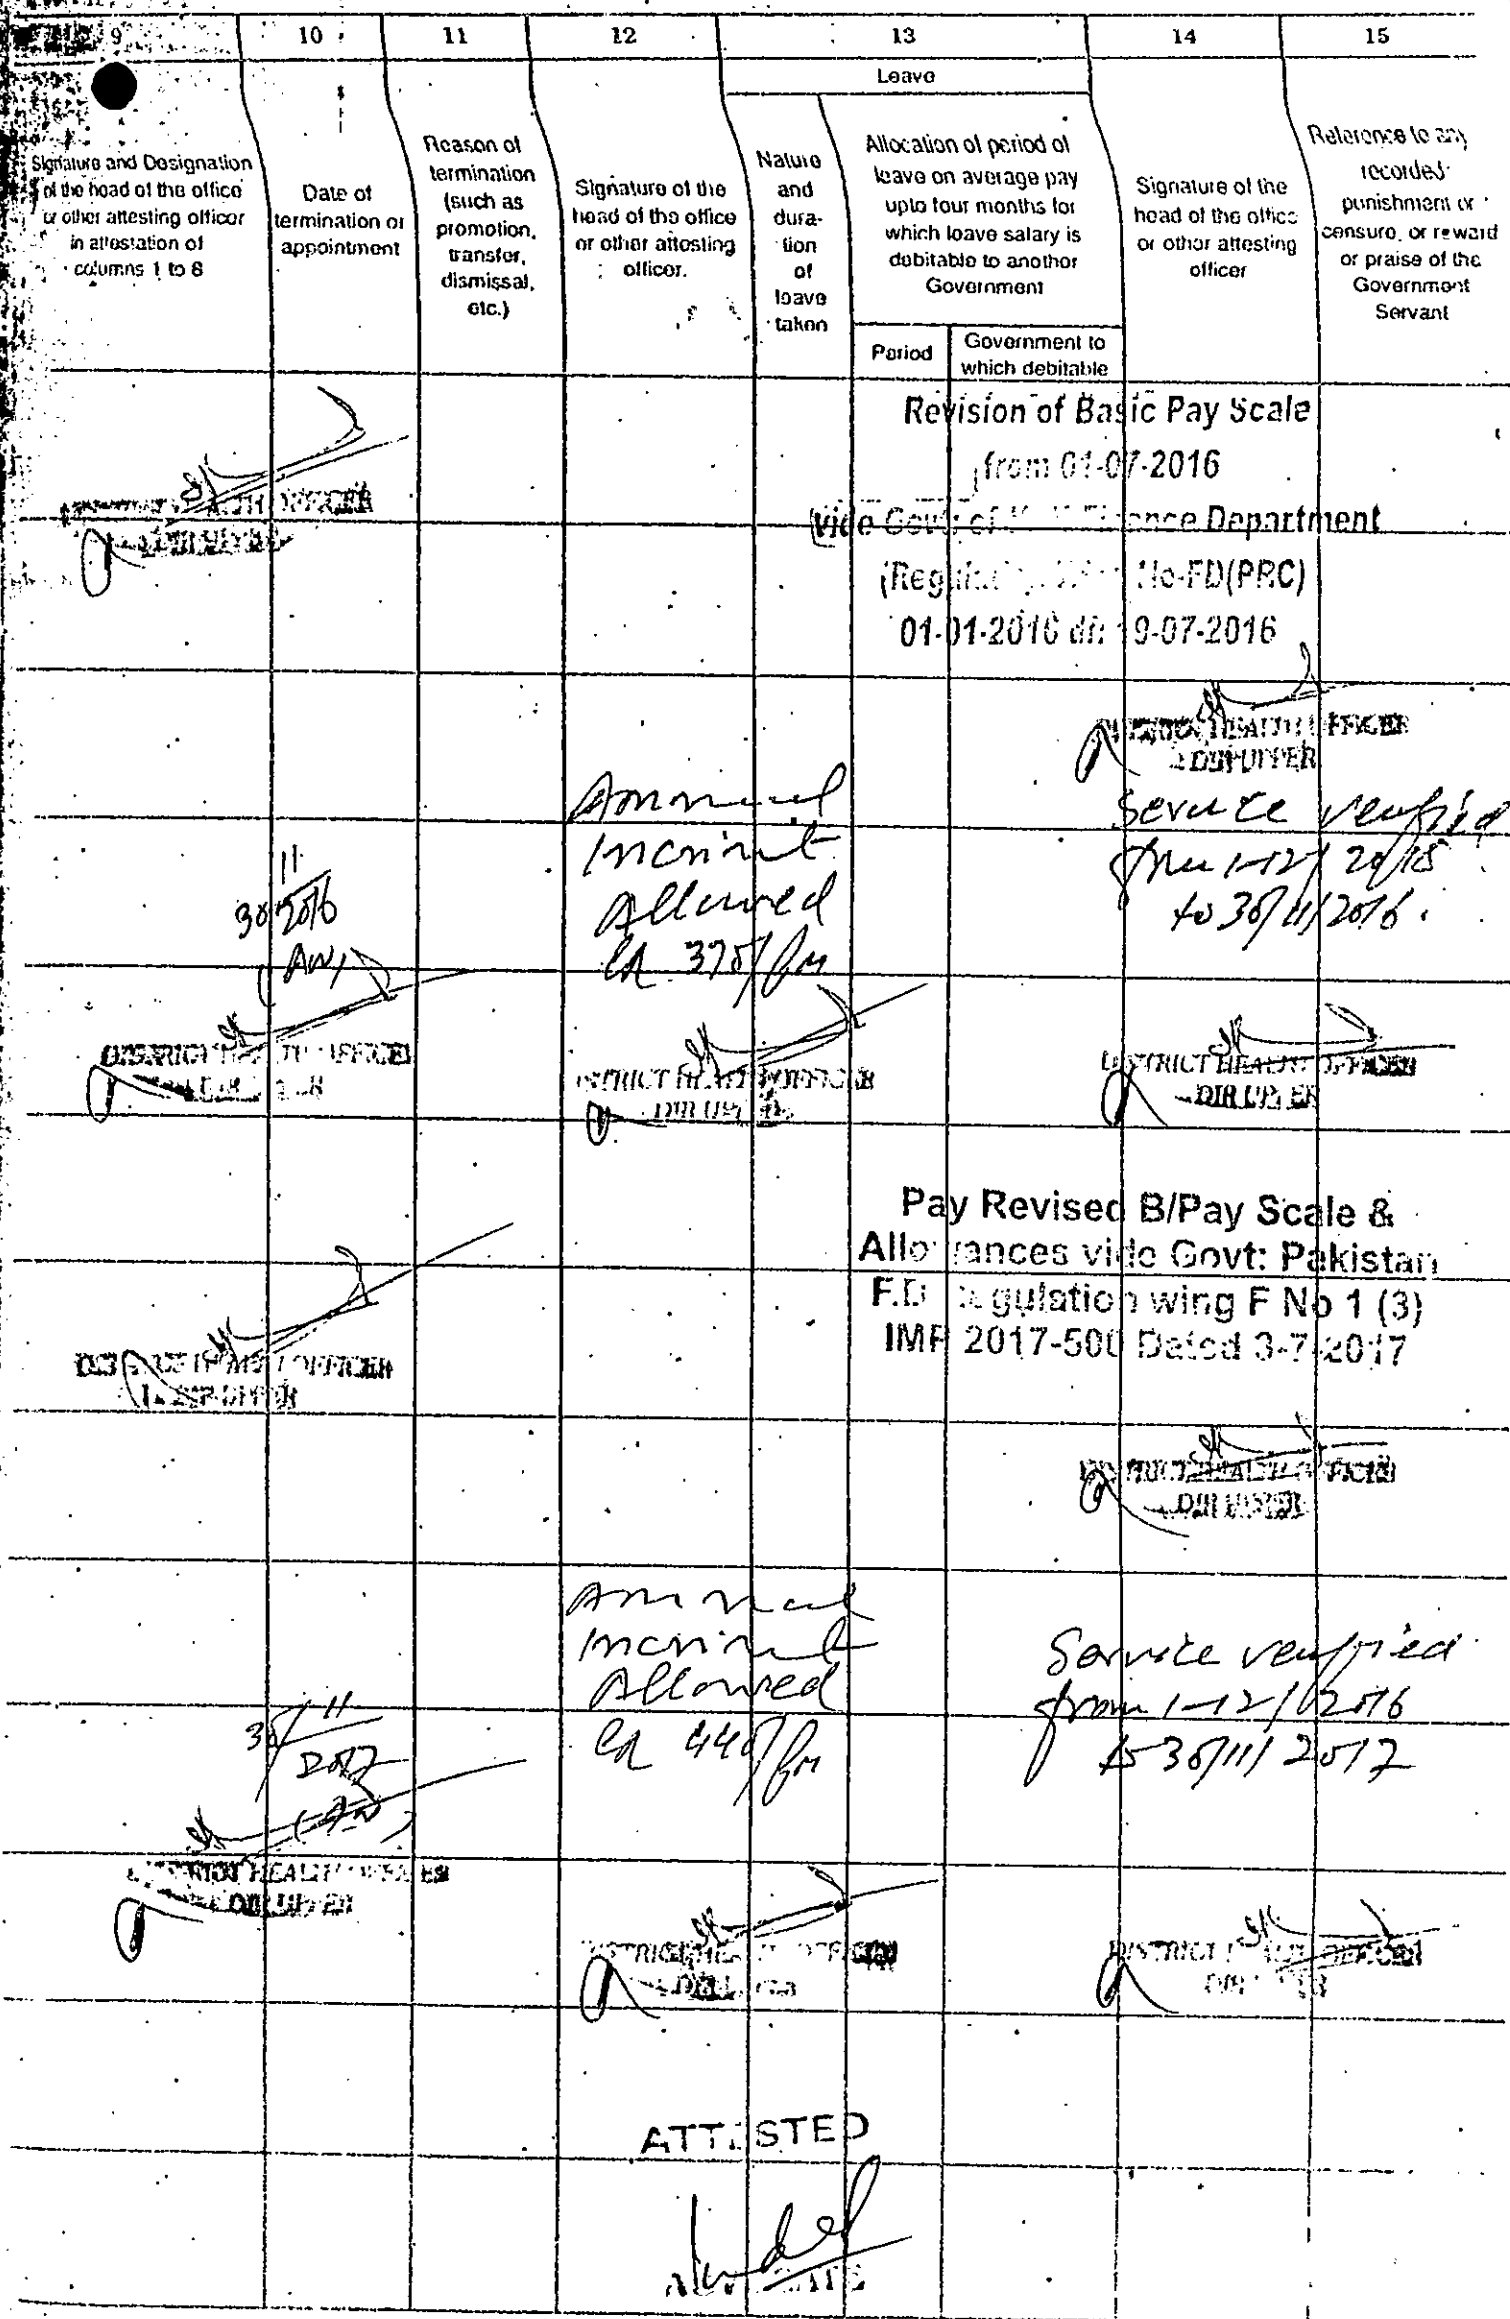 9 10 11 12 13 14 15
Leave
Signature and Designation
of the head of the office
or other attesting officer
in attestation of
columns 1 to 8
Date of
termination or
appointment
Reason of
termination
(such as
promotion,
transfer,
dismissal,
etc.)
Signature of the
head of the office
or other attesting
officer.
Nature
and
dura-
tion
of
leave
taken
Allocation of period of
leave on average pay
upto four months for
which leave salary is
debitable to another
Government
Period
Government to
which debitable
Signature of the
head of the office
or other attesting
officer
Reference to any
recorded
punishment or
censure, or reward
or praise of the
Government
Servant
Revision of Basic Pay Scale
from 01-07-2016
(vide Govt: of Finance Department
No-FD(PRC)
01-01-2016 dt: 19-07-2016
HEALTH OFFICER
DISTRICT HEALTH OFFICER
DIR UPPER
Annual
Incriment
Allowed
370/Pm
Service verified
from 1-12/2015
to 30/11/2016.
30/11/2016
(AN)
DISTRICT HEALTH OFFICER
DISTRICT HEALTH OFFICER
DIR UPPER
DISTRICT HEALTH OFFICER
DIR UPPER
Pay Revised B/Pay Scale &
Allowances vide Govt: Pakistan
F.D Regulation wing F No 1 (3)
IMP 2017-500 Dated 3-7-2017
OFFICER
DISTRICT HEALTH OFFICER
DIR UPPER
Annual
Incriment
Allowed
440/Pm
Service verified
from 1-12/2016
to 30/11/2017
30/11/2017
(AN)
DISTRICT HEALTH OFFICER
DIR UPPER
DISTRICT HEALTH OFFICER
DISTRICT HEALTH OFFICER
ATTESTED